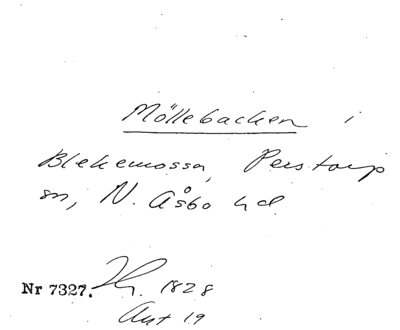 Möllebacken i
Blekemossa, Perstorp
sn, N. Åsbo hd
Nr 7327. 1828
Aut 19